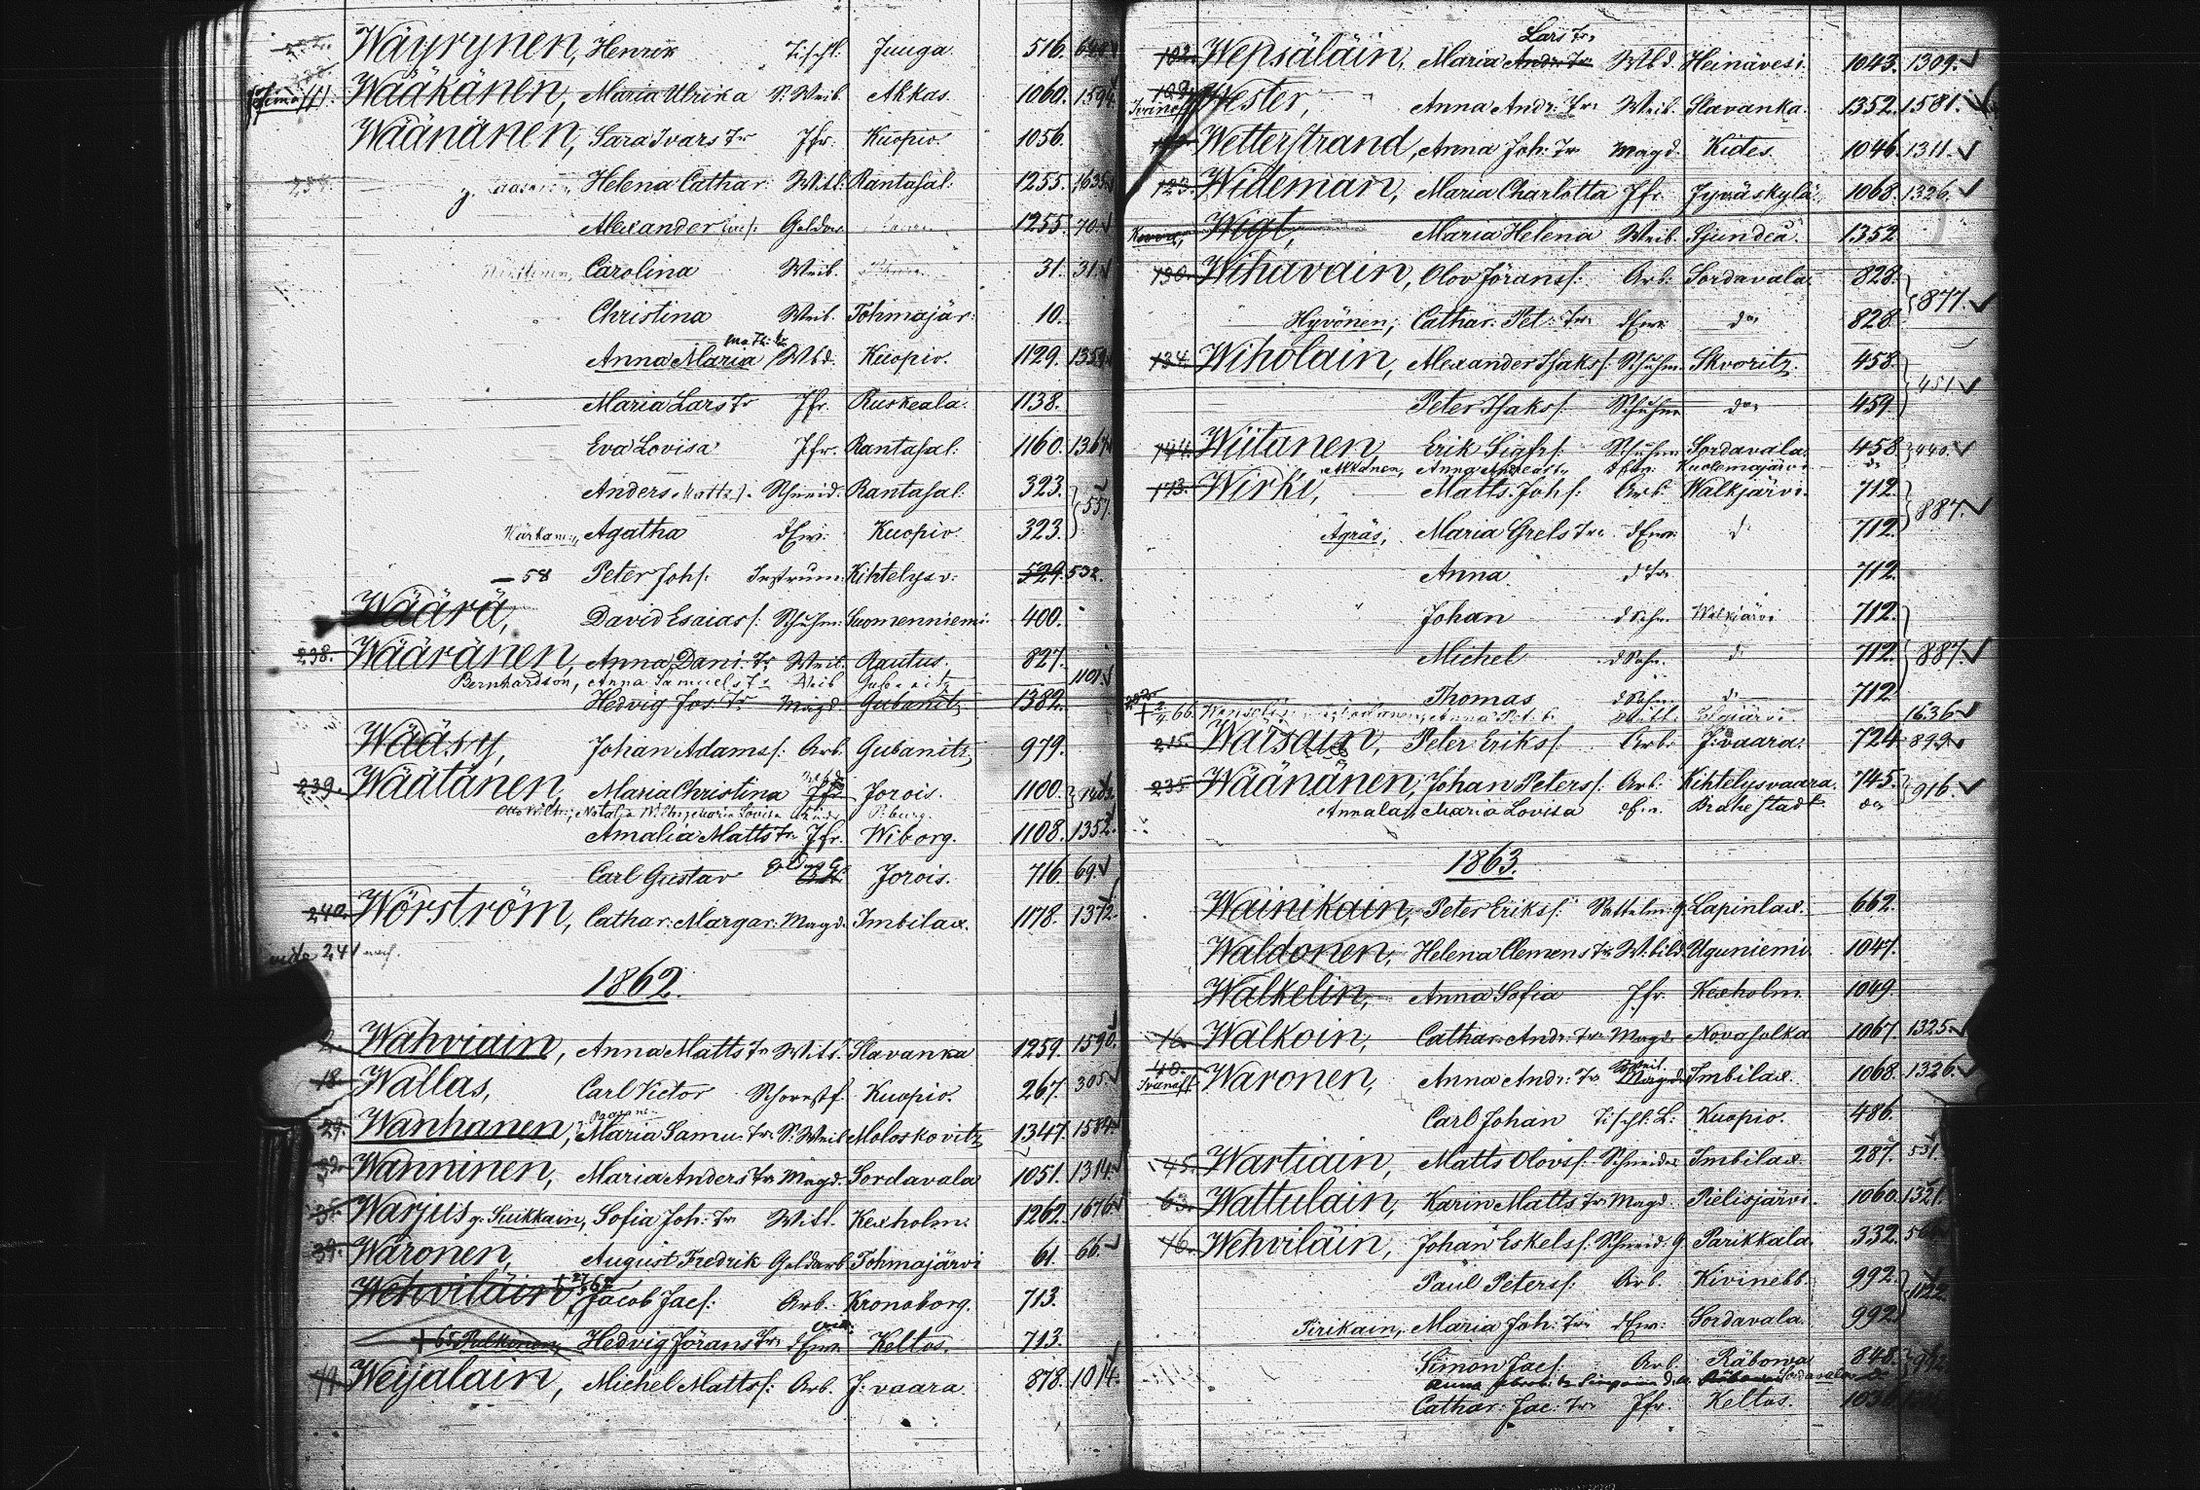 Wäyrynen, Henrik Tischl: Juuga. 516.
Wääkänen, Maria Ulrika S. Weib. Akkas. 1060. 1594
Wäänänen, Sara Ivars Tr Jfr. Kuopio. 1056.
Helena Cathar: Witt: Rantasal: 1255. 1635
Alexander Golda 1255. 70.
Carolina Weib. 31. 31.
Christina Weib. Tohmajär: 10.
Anna Maria Wbd. Kuopio. 1129. 1359
Maria Lars Tr Jfr. Ruskeala. 1138.
Eva Lovisa Jfr. Rantasal: 1160. 1367
Anders Matts f. Schneid: Rantasal: 323. 557
Agatha d Ew: Kuopio. 323.
58 Peter Joh f: Instrum: Kihtelysv: 529. 532.
Wäärä, David Esaias f: Schuhm: Suomenniemi. 400.
238. Wääränen, Anna Dani: Tr Weib. Rautus. 827.
Bernhardson, Anna Samuels Tr Weib 1101
Hedvig Jos Tr Magd. Gubanitz 1382.
Wääsy, Johan Adams f: Arb. Gubanitz 979.
239. Wäätänen, Maria Christina Jfr Jorois. 1100.
Amalia Matts Tr Jfr. Wiborg. 1108. 1352.
Carl Gustav Jorois. 716. 69.
240. Wörström, Cathar: Margar: Magd. Imbilax. 1178. 1372.
241 nach.
1862.
2. Wahviain, Anna Matts Tr Witt. Slavanka 1259. 1590.
18. Wallas, Carl Victor Schornstf. Kuopio. 267. 305.
29. Wanhanen, Maria Samu: Tr S. Weib Moloskovitz 1347. 1584.
32. Wanninen, Maria Anders Tr Magd. Sordavala 1051. 1314.
35. Warjus g. Suikkain, Sofia Joh: Tr Witt. Kexholm. 1262. 1676
39. Waronen, August Fredrik Goldarb Tohmajärvi 61. 66.
Wehviläin, Jacob Jac f: Arb. Kronoborg. 713.
† 65 Pulkkonen Hedvig Jörans Tr d Ew. Keltos. 713.
Weijalain, Michel Matts f: Arb. J: vaara. 878. 1014.
Lars Tr
102. Wepsäläin, Maria Andr: Tr Wbd. Heinävesi. 1043. 1309.
109. Iwanoff Wester, Anna Andr: Tr Weib. Slavanka. 1352. 1581.
Wetterstrand, Anna Joh: Tr Magd. Kides. 1046. 1311.
123. Wideman, Maria Charlotta Jfr. Jyväskylä. 1068. 1326.
Wigt, Maria Helena Weib. Sjundeå. 1352
130. Wihavain, Olov Jörans f: Arb: Sordavala. 828. 877.
Hyvönen, Cathar: Pet: Tr d Ew: do 828.
134. Wiholain, Alexander Isaks f: Schuhm. Skvoritz. 458. 451
Peter Isaks f. Schuhm do 459.
144. Wiitanen Erik Sigfr f: Schuhm Sordavala. 458 440.
Akkanen, Anna Andreas Tr d Ew: Kuolemajärvi do
173. Wirki, Matts Joh f: Arb: Walkjärvi. 712. 887.
Agräs, Maria Grels Tr d Ew. d: 712.
Anna. d Tr 712.
Johan d Sohn. Walkjärvi 712.
Michel d Sohn. d: 712. 887.
Thomas d Sohn d: 712
1636
215. Waisain, Peter Eriks f. Arb: J: vaara. 724. 899.
235. Wäänänen, Johan Peters f. Arb: Kihtelysvaara. 745. 916.
Annala, Maria Lovisa d Ew. Brahestadt do
1863.
Wainikain, Peter Eriks f: Sattelm: g. Lapinlax. 662.
Waldonen, Helena Clemens Tr W. bild. Uguniemi. 1047.
Walkelin, Anna Sofia Jfr. Kexholm. 1049.
16. Walkoin, Cathar: Andr: Tr Magd. Novasolka 1067. 1325.
40. Iwanoff Waronen, Anna Andr: Tr Magd. Imbilax. 1068. 1326.
Carl Johan Tischl: L: Kuopio. 486.
45. Wartiain, Matts Olovs f: Schneider Imbilax. 287. 531.
63. Wattulain, Karin Matts Tr Magd. Pielisjärvi. 1060. 1321.
76. Wehviläin, Johan Eskels f: Schneid: g. Parikkala. 332.
Paul Peters f: Arb. Kivinebb. 992. 1122
Pirikain, Maria Joh: Tr d Ew: Sordavala. 992.
Simon Jac f: Arb. Räbowa 848.
Cathar: Jac: Tr Jfr. Keltos.